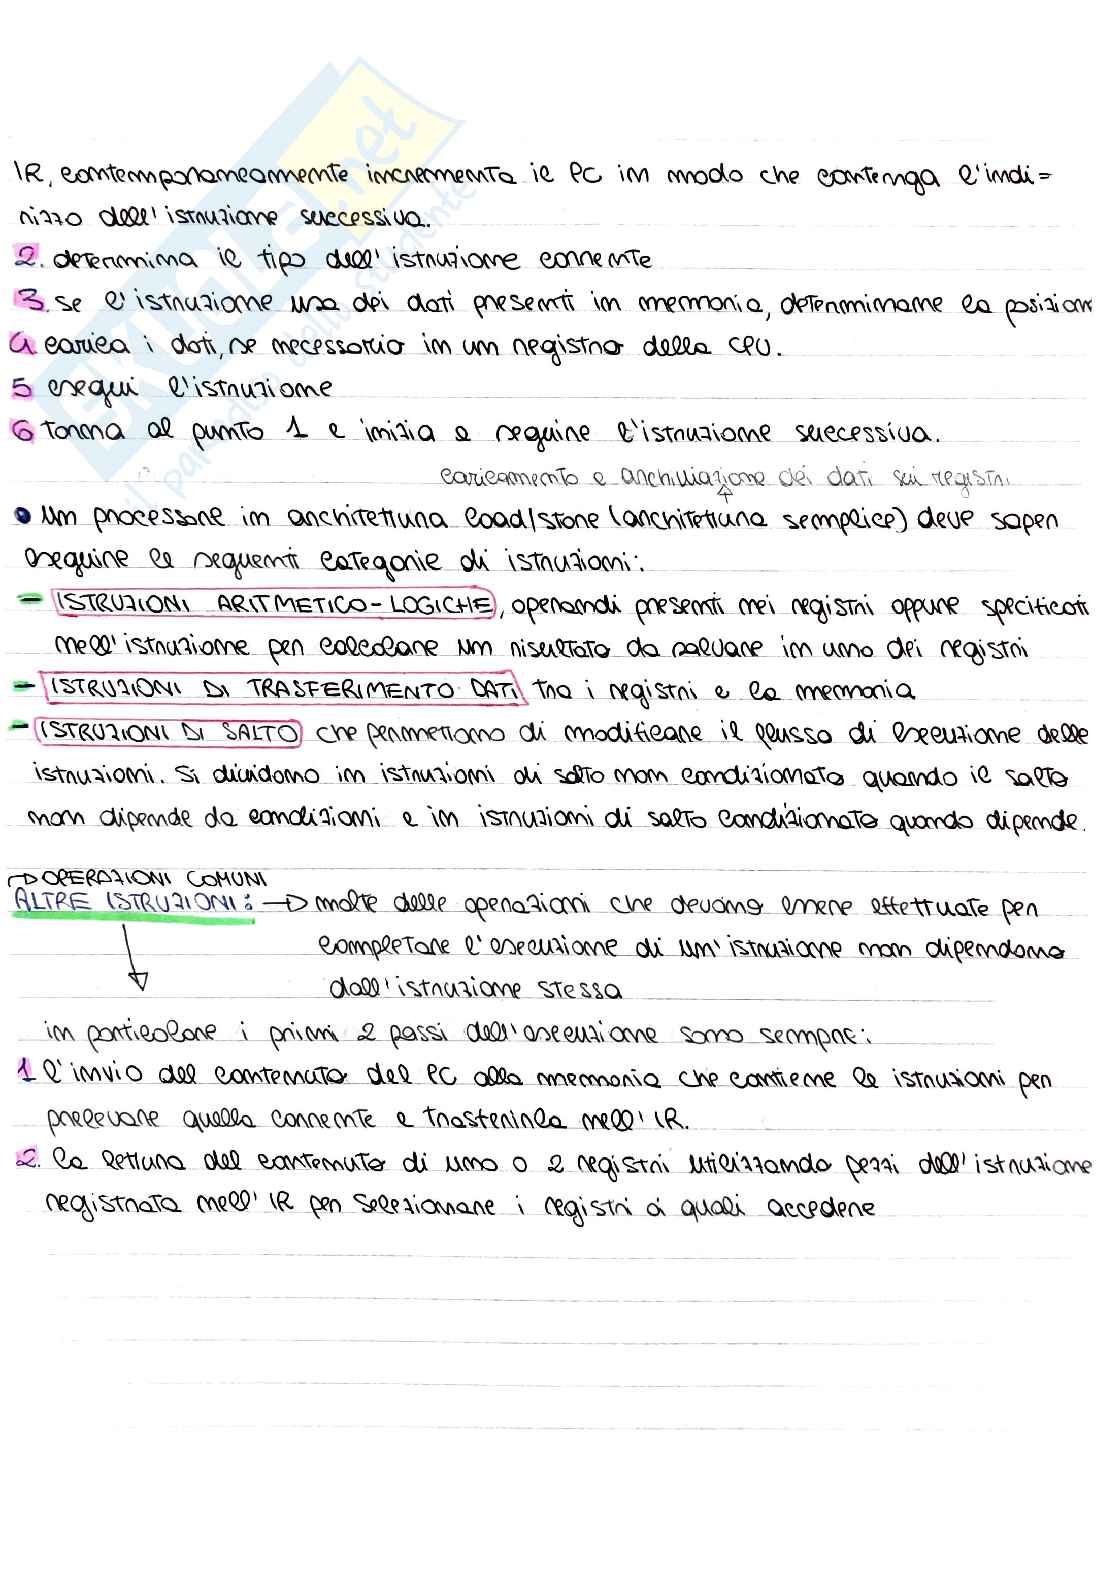 IR, contemporaneamente incrementa il PC in modo che contenga l'indi=
rizzo dell'istruzione successiva.
2. determina il tipo dell'istruzione corrente
3. se l'istruzione usa dei dati presenti in memoria, determinarne la posizion
4 carica i dati, se necessario in un registro della CPU.
5 esegui l'istruzione
6 torna al punto 1 e inizia a seguire l'istruzione successiva.
caricamento e archiviazione dei dati sui registri
• un processore in architettura load/store (architettura semplice) deve saper
eseguire le seguenti categorie di istruzioni:
- ISTRUZIONI ARITMETICO-LOGICHE, operandi presenti nei registri oppure specificati
nell'istruzione per calcolare un risultato da salvare in uno dei registri
- ISTRUZIONI DI TRASFERIMENTO DATI tra i registri e la memoria
- ISTRUZIONI DI SALTO che permettono di modificare il flusso di esecuzione delle
istruzioni. Si dividono in istruzioni di salto non condizionato quando il salto
non dipende da condizioni e in istruzioni di salto condizionato quando dipende.
→ OPERAZIONI COMUNI
ALTRE ISTRUZIONI: → molte delle operazioni che devono essere effettuate per
completare l'esecuzione di un'istruzione non dipendono
dall'istruzione stessa
in particolare i primi 2 passi dell'esecuzione sono sempre:
1 l'invio del contenuto del PC alla memoria che contiene le istruzioni per
prelevare quella corrente e trasferirla nell'IR.
2. la lettura del contenuto di uno o 2 registri utilizzando pezzi dell'istruzione
registrata nell'IR per selezionare i registri a quali accedere
SKUOLA.net
il paradiso dello studente